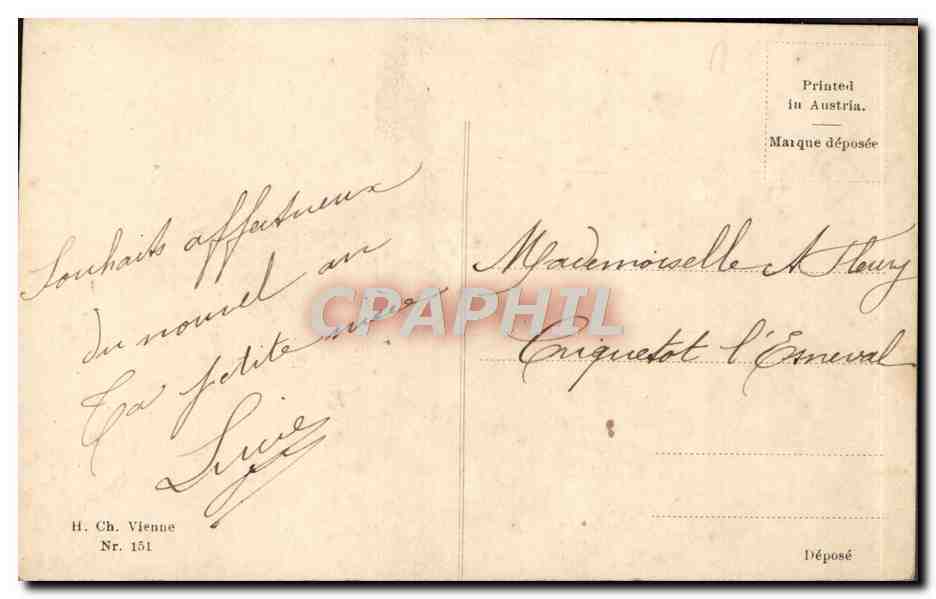 Printed
in Austria.
Marque déposée
Souhaits affectueux
du nouvel an
Ta petite nièce
Mademoiselle A Fleury
Criquetot l'Esneval
CPAPHIL
H. Ch. Vienne
Nr. 151
Déposé